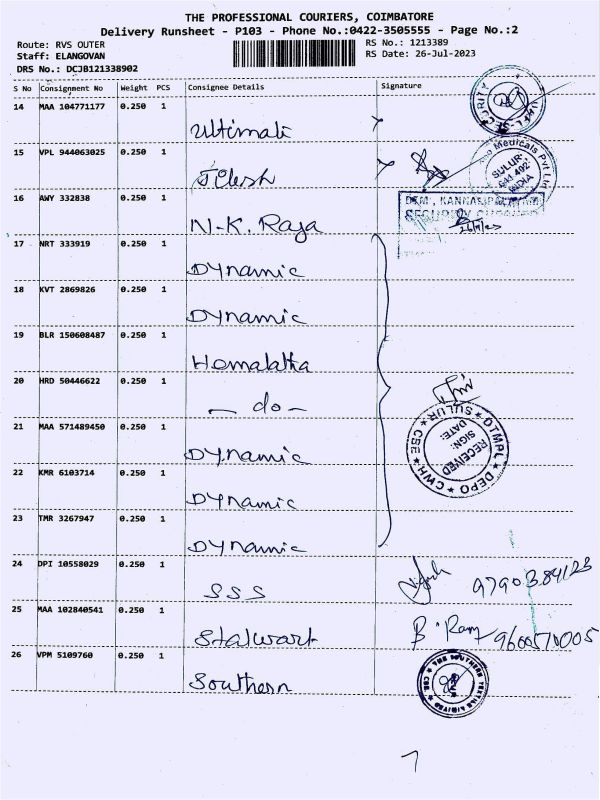 THE PROFESSIONAL COURIERS, COIMBATORE
Delivery Runsheet - P103 - Phone No.:0422-3505555 - Page No.:2
Route: RVS OUTER
RS No.: 1213389
Staff: ELANGOVAN
RS Date: 26-Jul-2023
DRS No.: DCJB121338902
S No Consignment No Weight PCS Consignee Details Signature
14 MAA 104771177 0.250 1
Ultimate
15 VPL 944063025 0.250 1
16 AWY 332838 0.250 1
N-K. Raja
17 NRT 333919 0.250 1
Dynamic
18 KVT 2869826 0.250 1
Dynamic
19 BLR 150608487 0.250 1
Hemalatha
20 HRD 50446622 0.250 1
- do -
21 MAA 571489450 0.250 1
Dynamic
22 KMR 6103714 0.250 1
Dynamic
23 TMR 3267947 0.250 1
Dynamic
24 DPI 10558029 0.250 1
SSS
25 MAA 102840541 0.250 1
Stalwart B. Ram 9600570005
26 VPM 5109760 0.250 1
Southern
SECURITY
Medicals Pvt Ltd
SULUR
641 402
INDIA
SECURITY
DTMPL * DEPO * CWH * CBE * SULUR
RECEIVED
SIGN:
DATE: